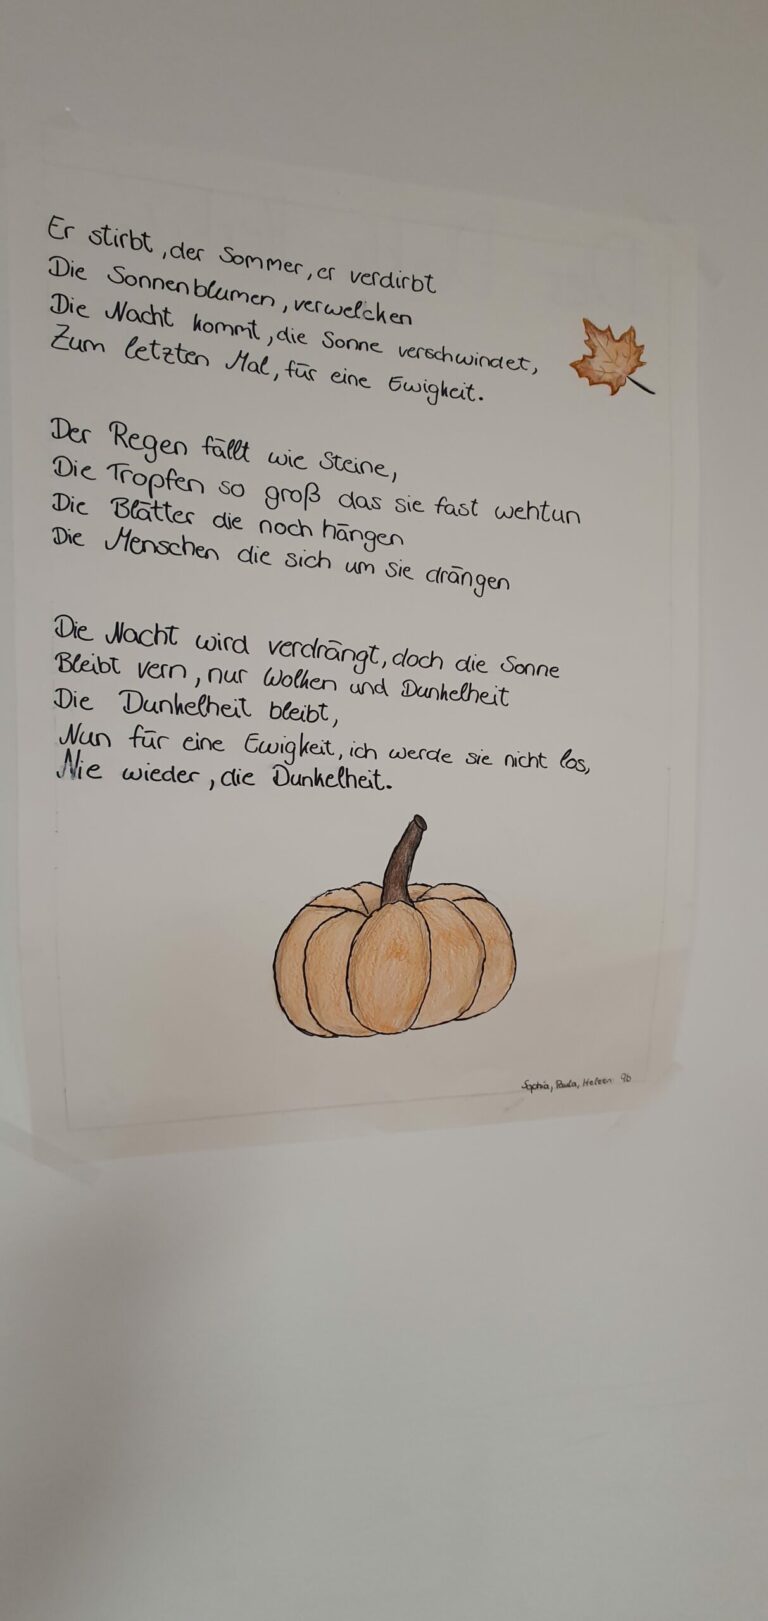 Er stirbt, der Sommer, er verdirbt
Die Sonnenblumen, verwelken
Die Nacht kommt, die Sonne verschwindet,
Zum letzten Mal, für eine Ewigkeit.
Der Regen fällt wie Steine,
Die Tropfen so groß das sie fast wehtun
Die Blätter die noch hängen
Die Menschen die sich um sie drängen
Die Nacht wird verdrängt, doch die Sonne
Bleibt vern, nur Wolken und Dunkelheit
Die Dunkelheit bleibt,
Nun für eine Ewigkeit, ich werde sie nicht los,
Nie wieder, die Dunkelheit.
Sophia, Paula, Heleen 9b